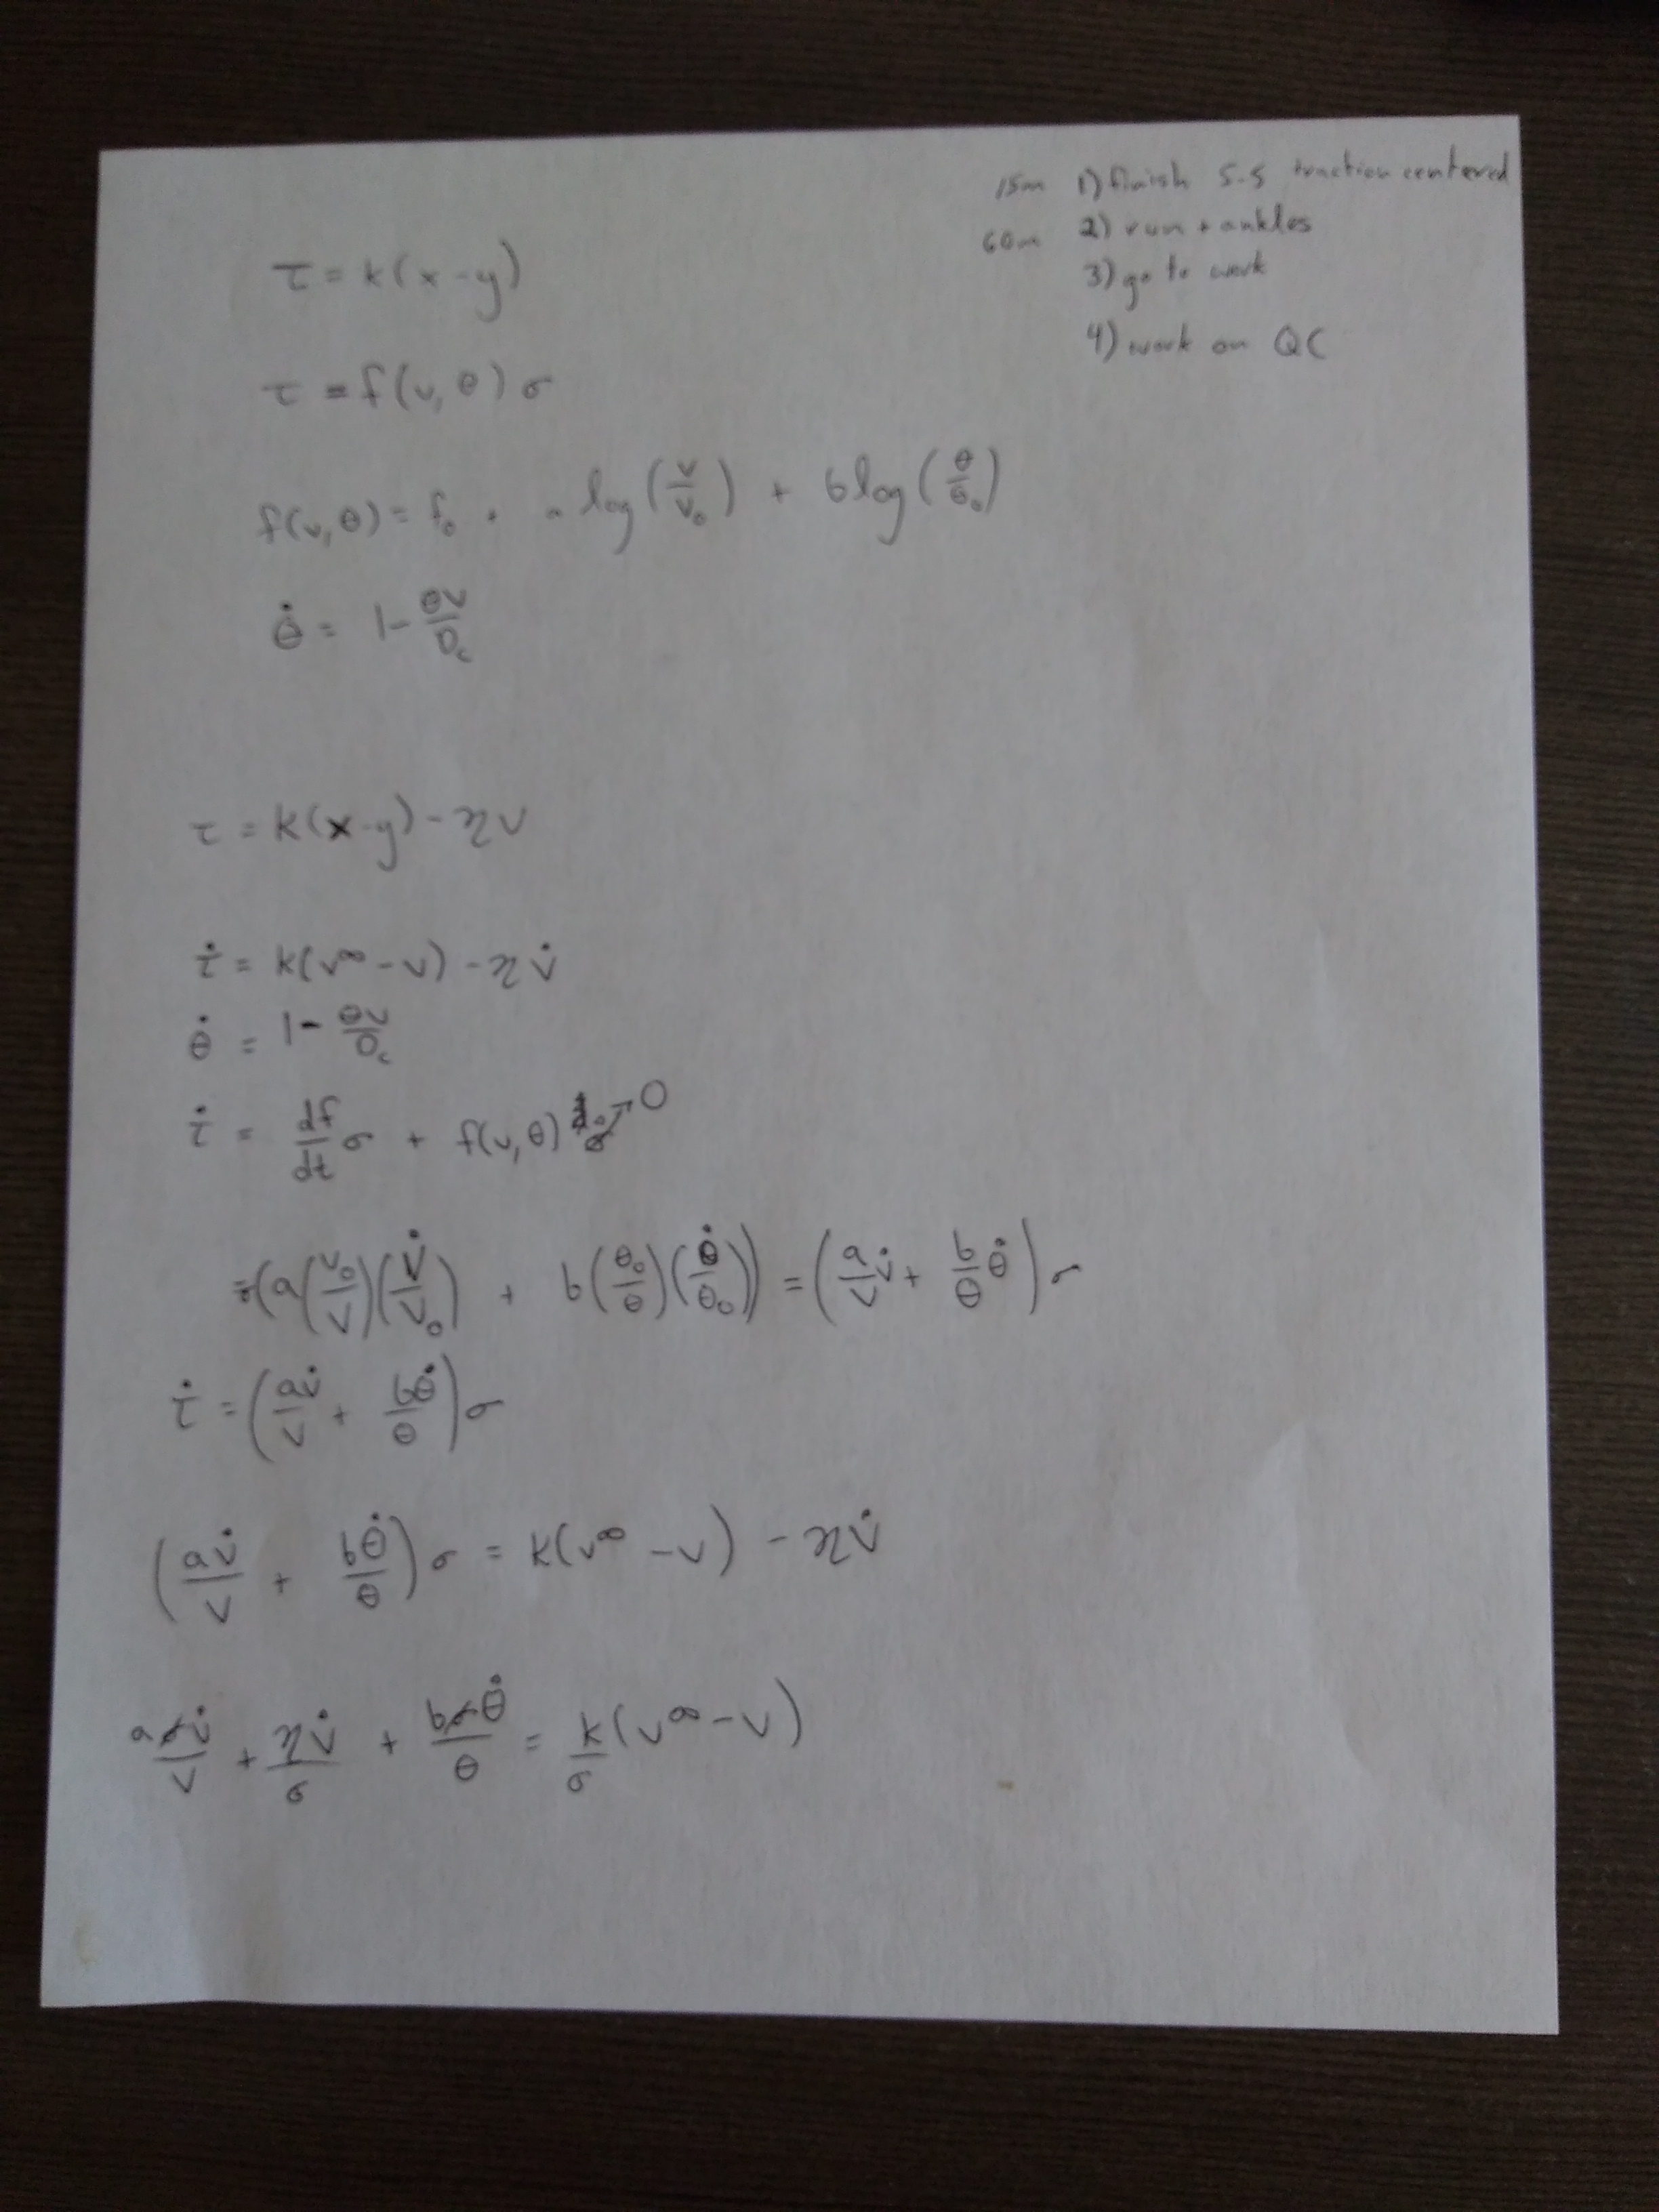 15m 1) finish S-S traction centered
60m 2) run + ankles
3) go to work
4) work on QC
τ = k(x-y)
τ = f(v, θ) σ
f(v, θ) = f₀ + a log(v/v₀) + b log(θ/θ₀)
θ̇ = 1 - θv/D_c
τ = k(x-y) - ηv
τ̇ = k(v^∞ - v) - ηv̇
θ̇ = 1 - θv/D_c
τ̇ = df/dt σ + f(v, θ) σ̇ → 0
= (a(v₀/v)(v̇/v₀) + b(θ₀/θ)(θ̇/θ₀)) = (a/v v̇ + b/θ θ̇) σ
τ̇ = (av̇/v + bθ̇/θ) σ
(av̇/v + bθ̇/θ) σ = k(v^∞ - v) - ηv̇
av̇/v + ηv̇/σ + bθ̇/θ = k/σ (v^∞ - v)